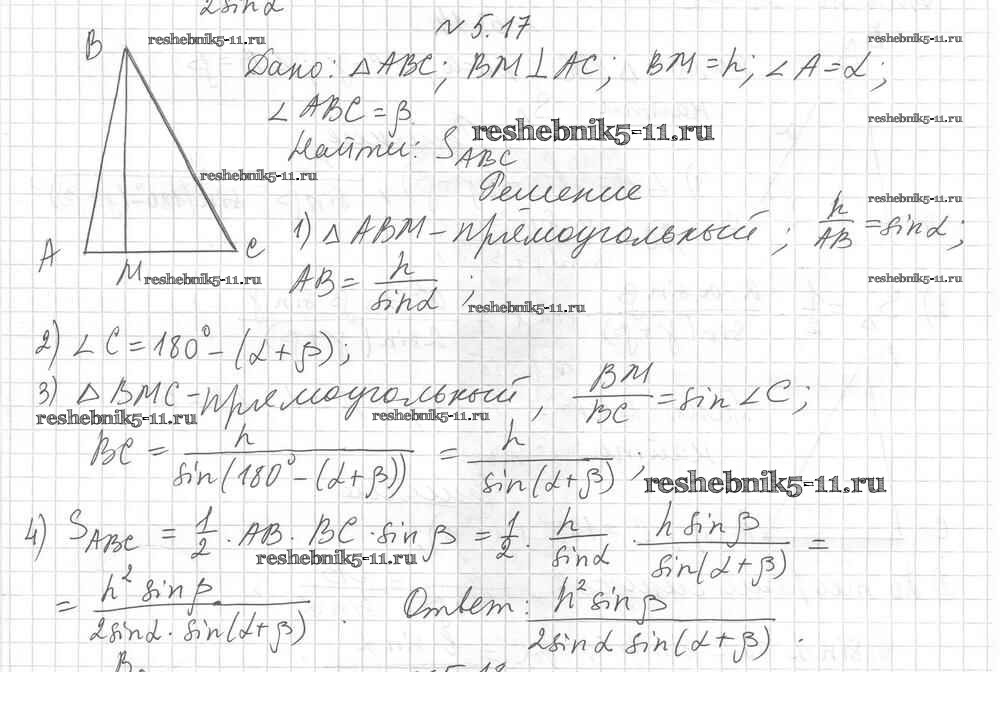 2sinα
N 5.17
B
reshebnik5-11.ru
reshebnik5-11.ru
Дано: △ABC; BM⊥AC; BM=h; ∠A=α;
∠ABC=β.
reshebnik5-11.ru
reshebnik5-11.ru
Найти: S_ABC
reshebnik5-11.ru
Решение
reshebnik5-11.ru
1) △ABM – прямоугольный; h/AB = sinα;
A
M
C
reshebnik5-11.ru
reshebnik5-11.ru
AB = h/sinα;
reshebnik5-11.ru
2) ∠C=180°–(α+β);
3) △BMC – прямоугольный, BM/BC = sin∠C;
reshebnik5-11.ru
reshebnik5-11.ru
BC = h/sin(180°–(α+β)) = h/sin(α+β);
reshebnik5-11.ru
4) S_ABC = 1/2 · AB · BC · sinβ = 1/2 · h/sinα · h sinβ/sin(α+β) =
reshebnik5-11.ru
= h² sinβ/2sinα · sin(α+β). Ответ: h² sinβ/2sinα sin(α+β).
B